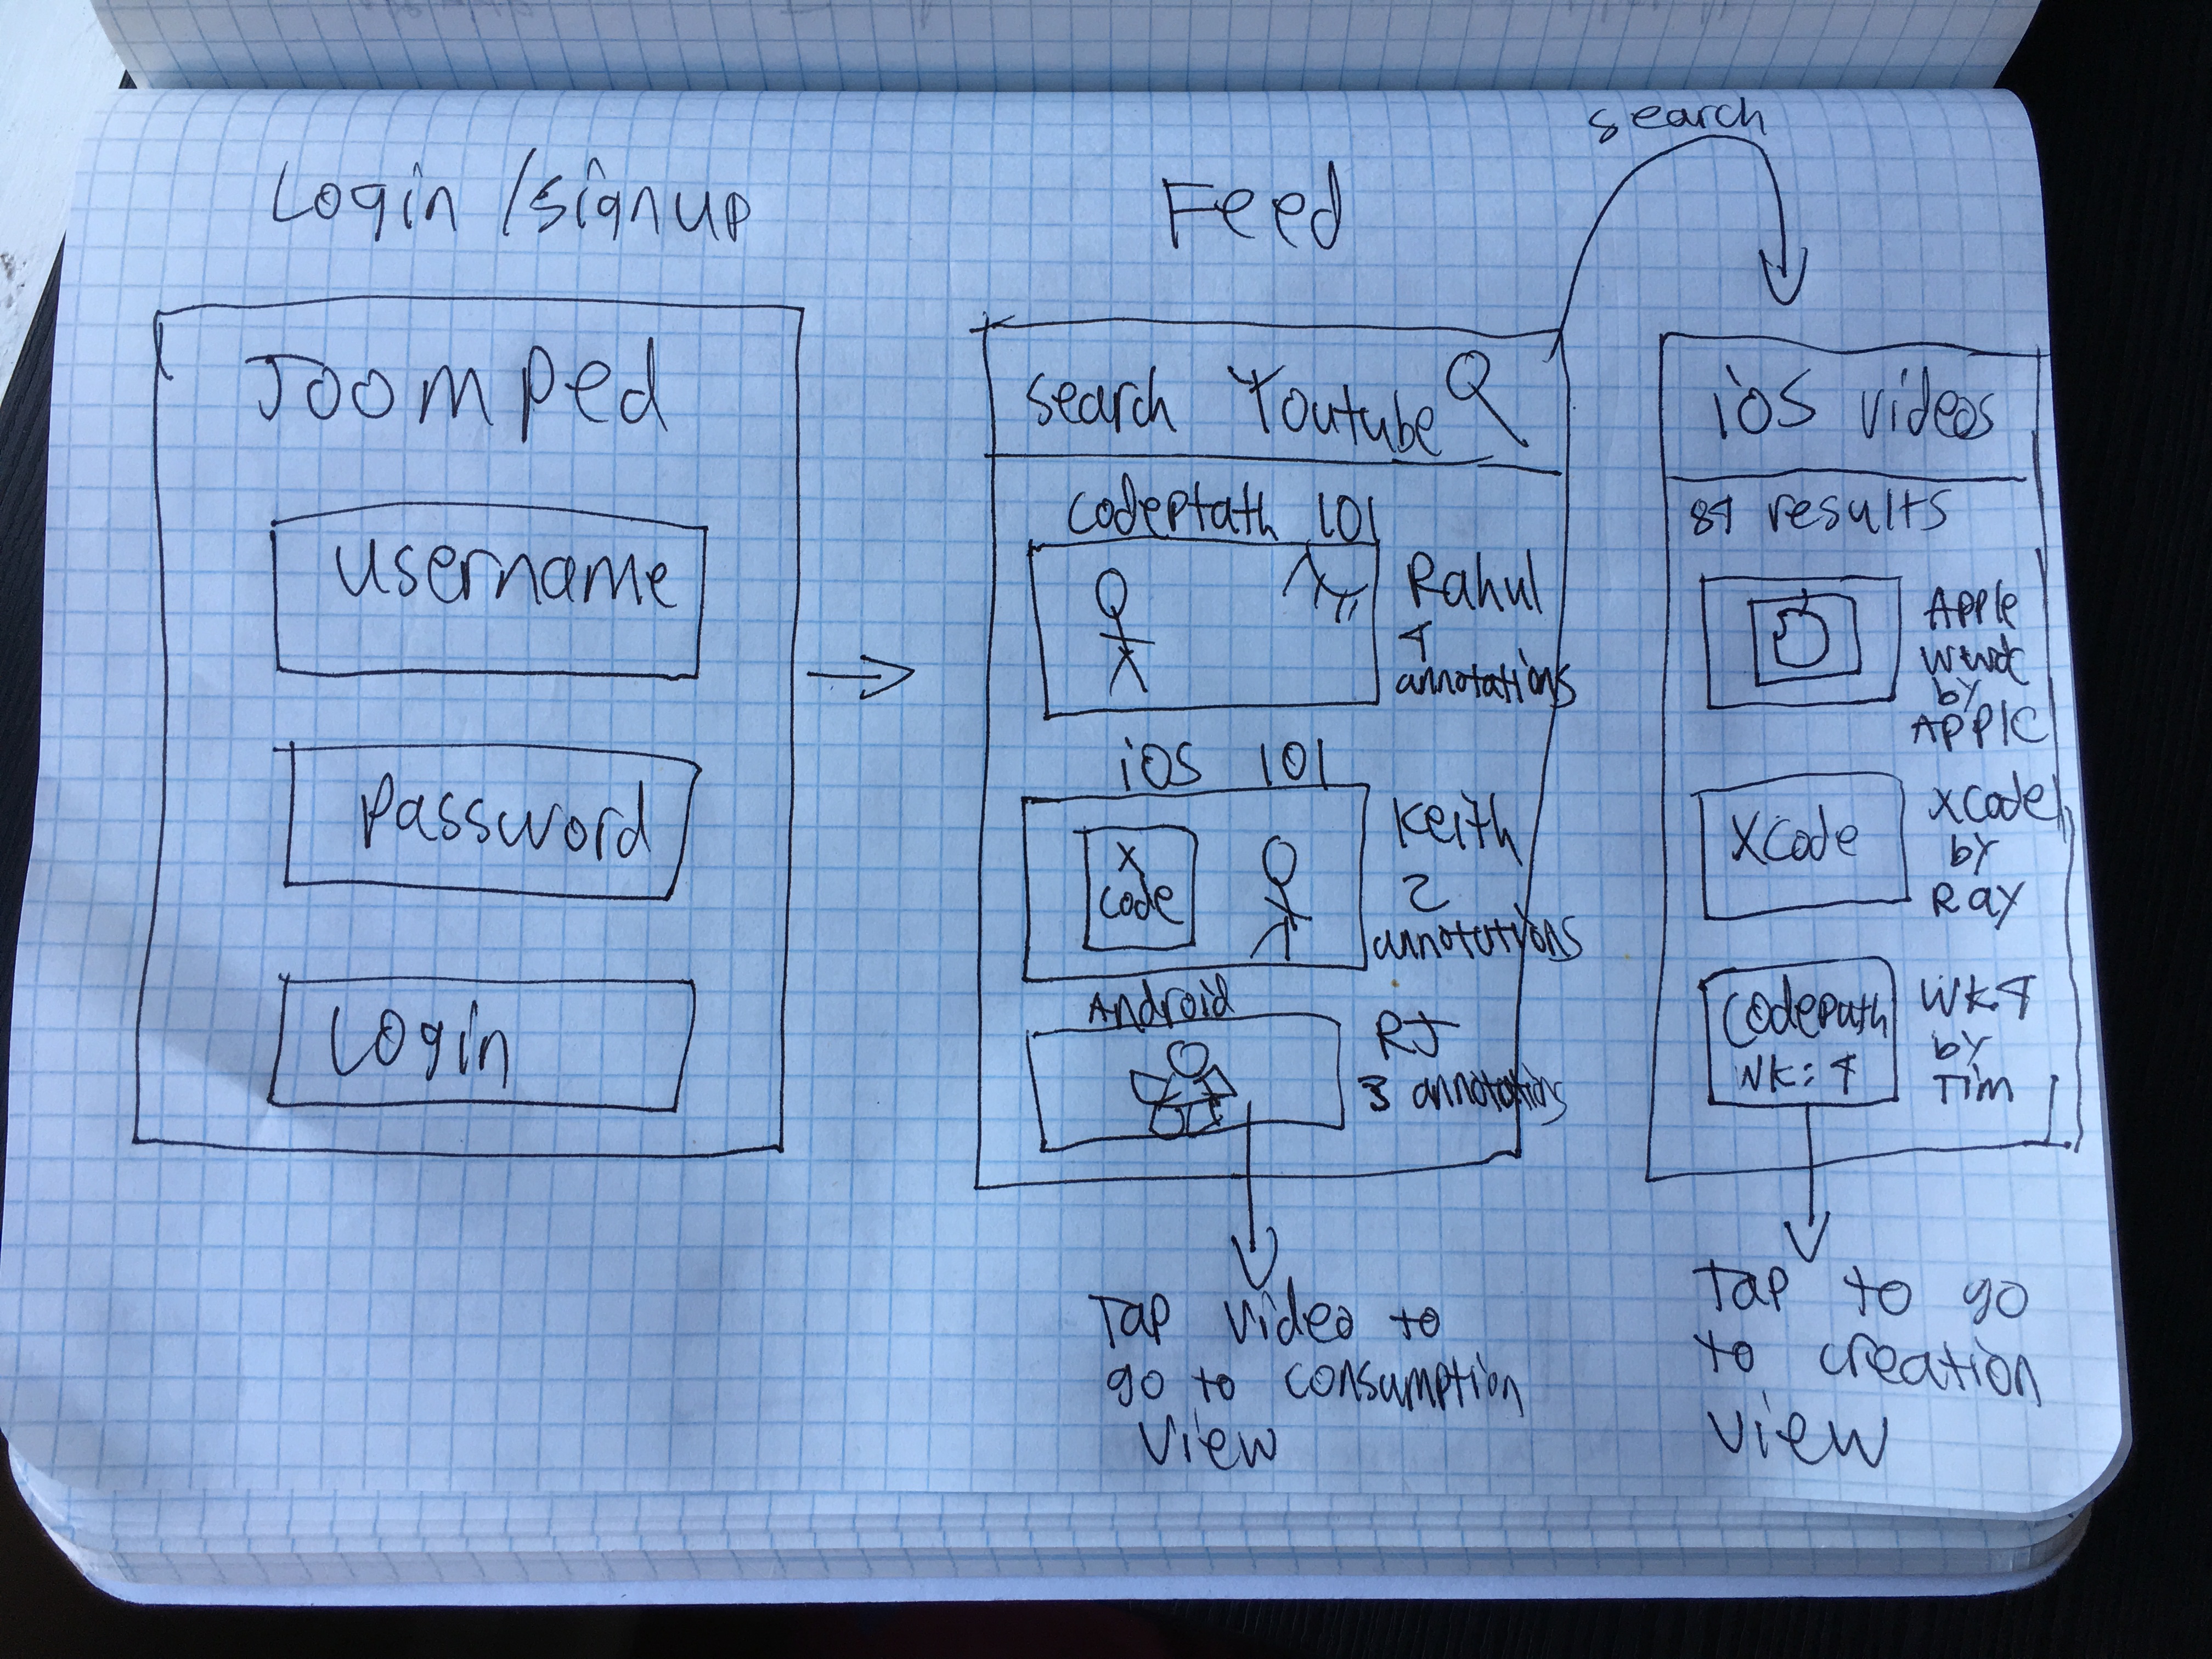 Login / signup
Joomped
username
Password
Login
Feed
search Youtube
Codeptath 101
Rahul
4
annotations
iOS 101
X
code
Keith
2
annotations
Android
RJ
3 annotations
Tap video to
go to consumption
View
search
iOS Videos
84 results
Apple
by
Apple
XCode
XCode
by
Ray
Codepath
Wk: 4
Wk 4
by
Tim
Tap to go
to creation
View